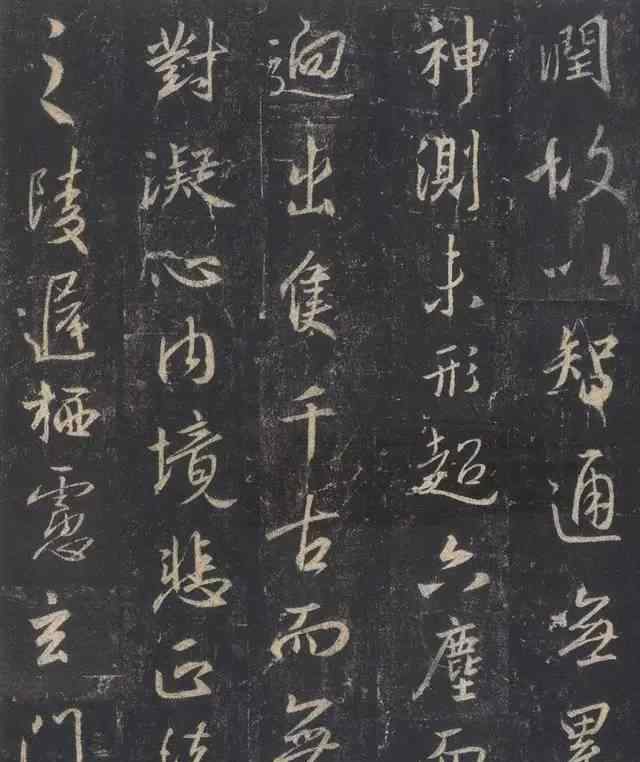 潤故以智通無累
神測未形超六塵而
逈出隻千古而無
對凝心内境悲正法
之陵遲栖慮玄門